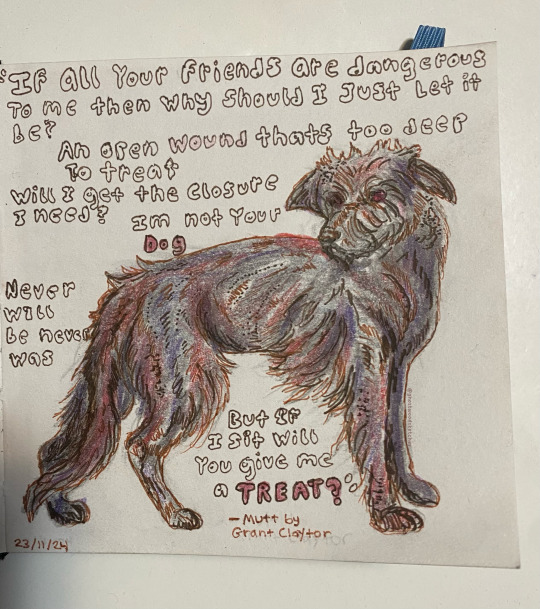 "If all Your friends are dangerous
To me then why should I just let it
be?
An open wound thats too deep
To treat
Will I get the closure
I need? Im not Your
Dog
Never
will
be never
was
But If
I sit will
You give me
a TREAT?"
- Mutt by
Grant Claytor
23/11/24